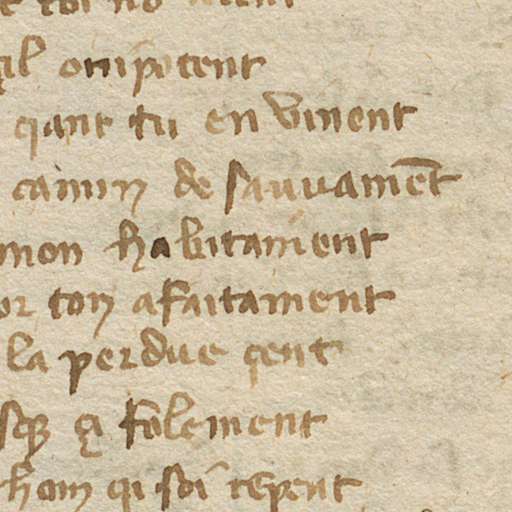 il omipotent
qant tu en vinent
camin de sauuamēt
mon habitament
or ton afaitament
la perdue çent
ça folement
hom qi soi repent